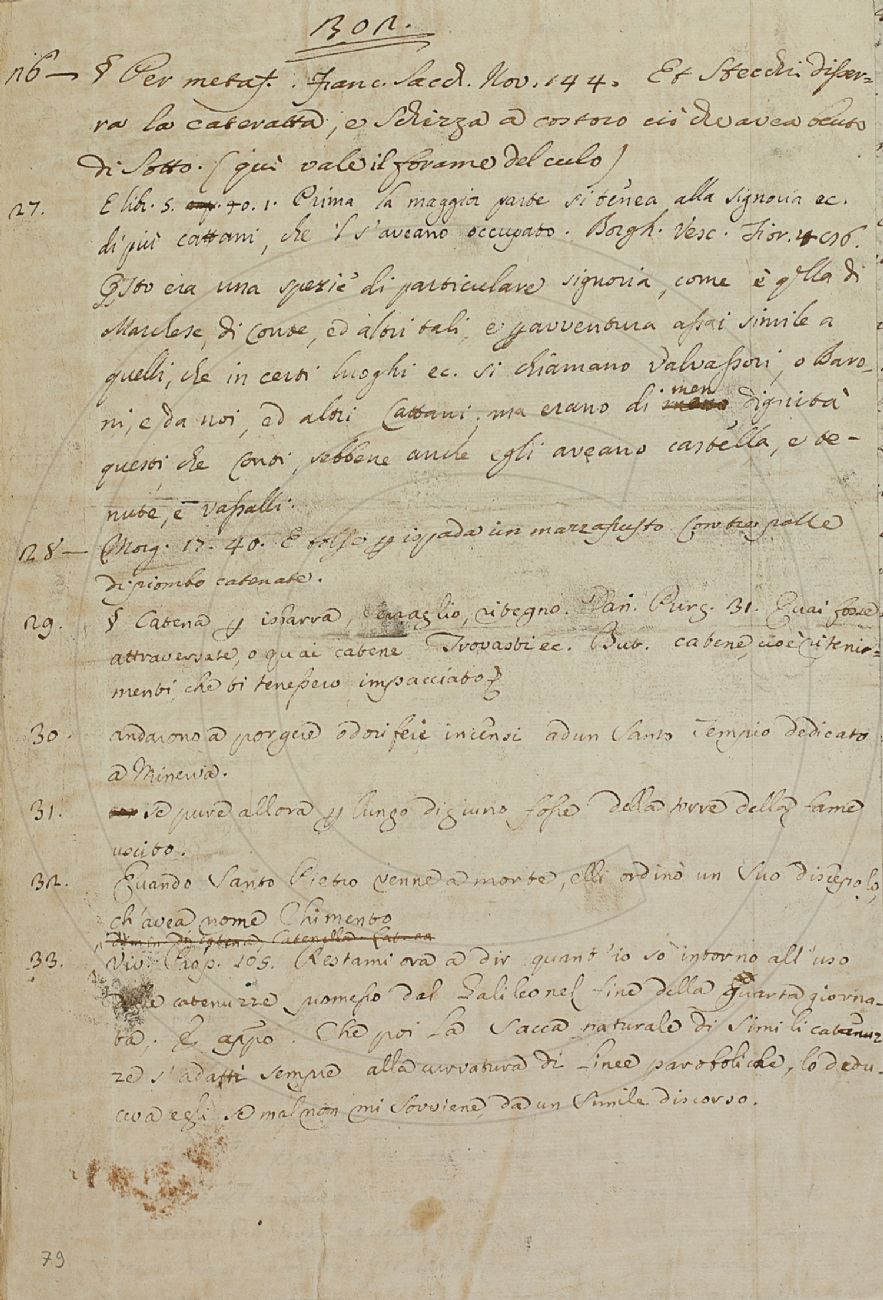 302.
26 — § Per metaf. Franc. Sacch. Nov. 144. Et Stecchi disser=
ra la cateratta, e schizza a costoro ciò che avea
di sotto. (qui vale il forame del culo)
27. E lib. 5. 70. 1. Prima la maggior parte si tenea alla signoria ec.
di più cattani, che il s'aveano occupato. Borgh. Vesc. Fior.
Qsto era una spezie di particulare signoria, come è qlla di
Marchese, di Conte, ed altri tali, e p avventura assai simile a
quelli, che in certi luoghi ec. si chiamano Valvassori, o Baro-
ni, e da noi, ed altri Cattani; ma erano di men dignità
questi, che Conti, sebbene anche egli aveano castella, e te-
nute, e vassalli.
28 — Morg. 17. 40. E tolse p ispada un mazzafrusto Con tre palle
di piombo catenate.
29. § Catena p isbarra, serraglio, ritegno. Dan. Purg. 31. Quai fosse
attraversate, o quai catene Trovasti ec. But. catene, cioè ritenio=
menti, che ti tenessero impacciato?
30. andarono a porgere odoriferi incensi ad un Santo Tempio dedicato
a Minerva.
31. se pure allora p lungo digiuno fosse della torre della fame
uscito.
32. Quando Santo Pietro venne a morte, elli ordinò un suo discepolo,
ch'avea nome Chimento
33. Viv. Prop. 105. Restami ora a dir quant'io so intorno all'uso
catenuzze promesso dal Galileo nel fine della quarta giorna-
ta. E appo. Che poi la sacca naturale di simili catenuz
ze s'adatti sempre alla curvatura di linee paraboliche, lo dedu-
ceva egli se mal non mi sovviene, da un simile discorso.
79